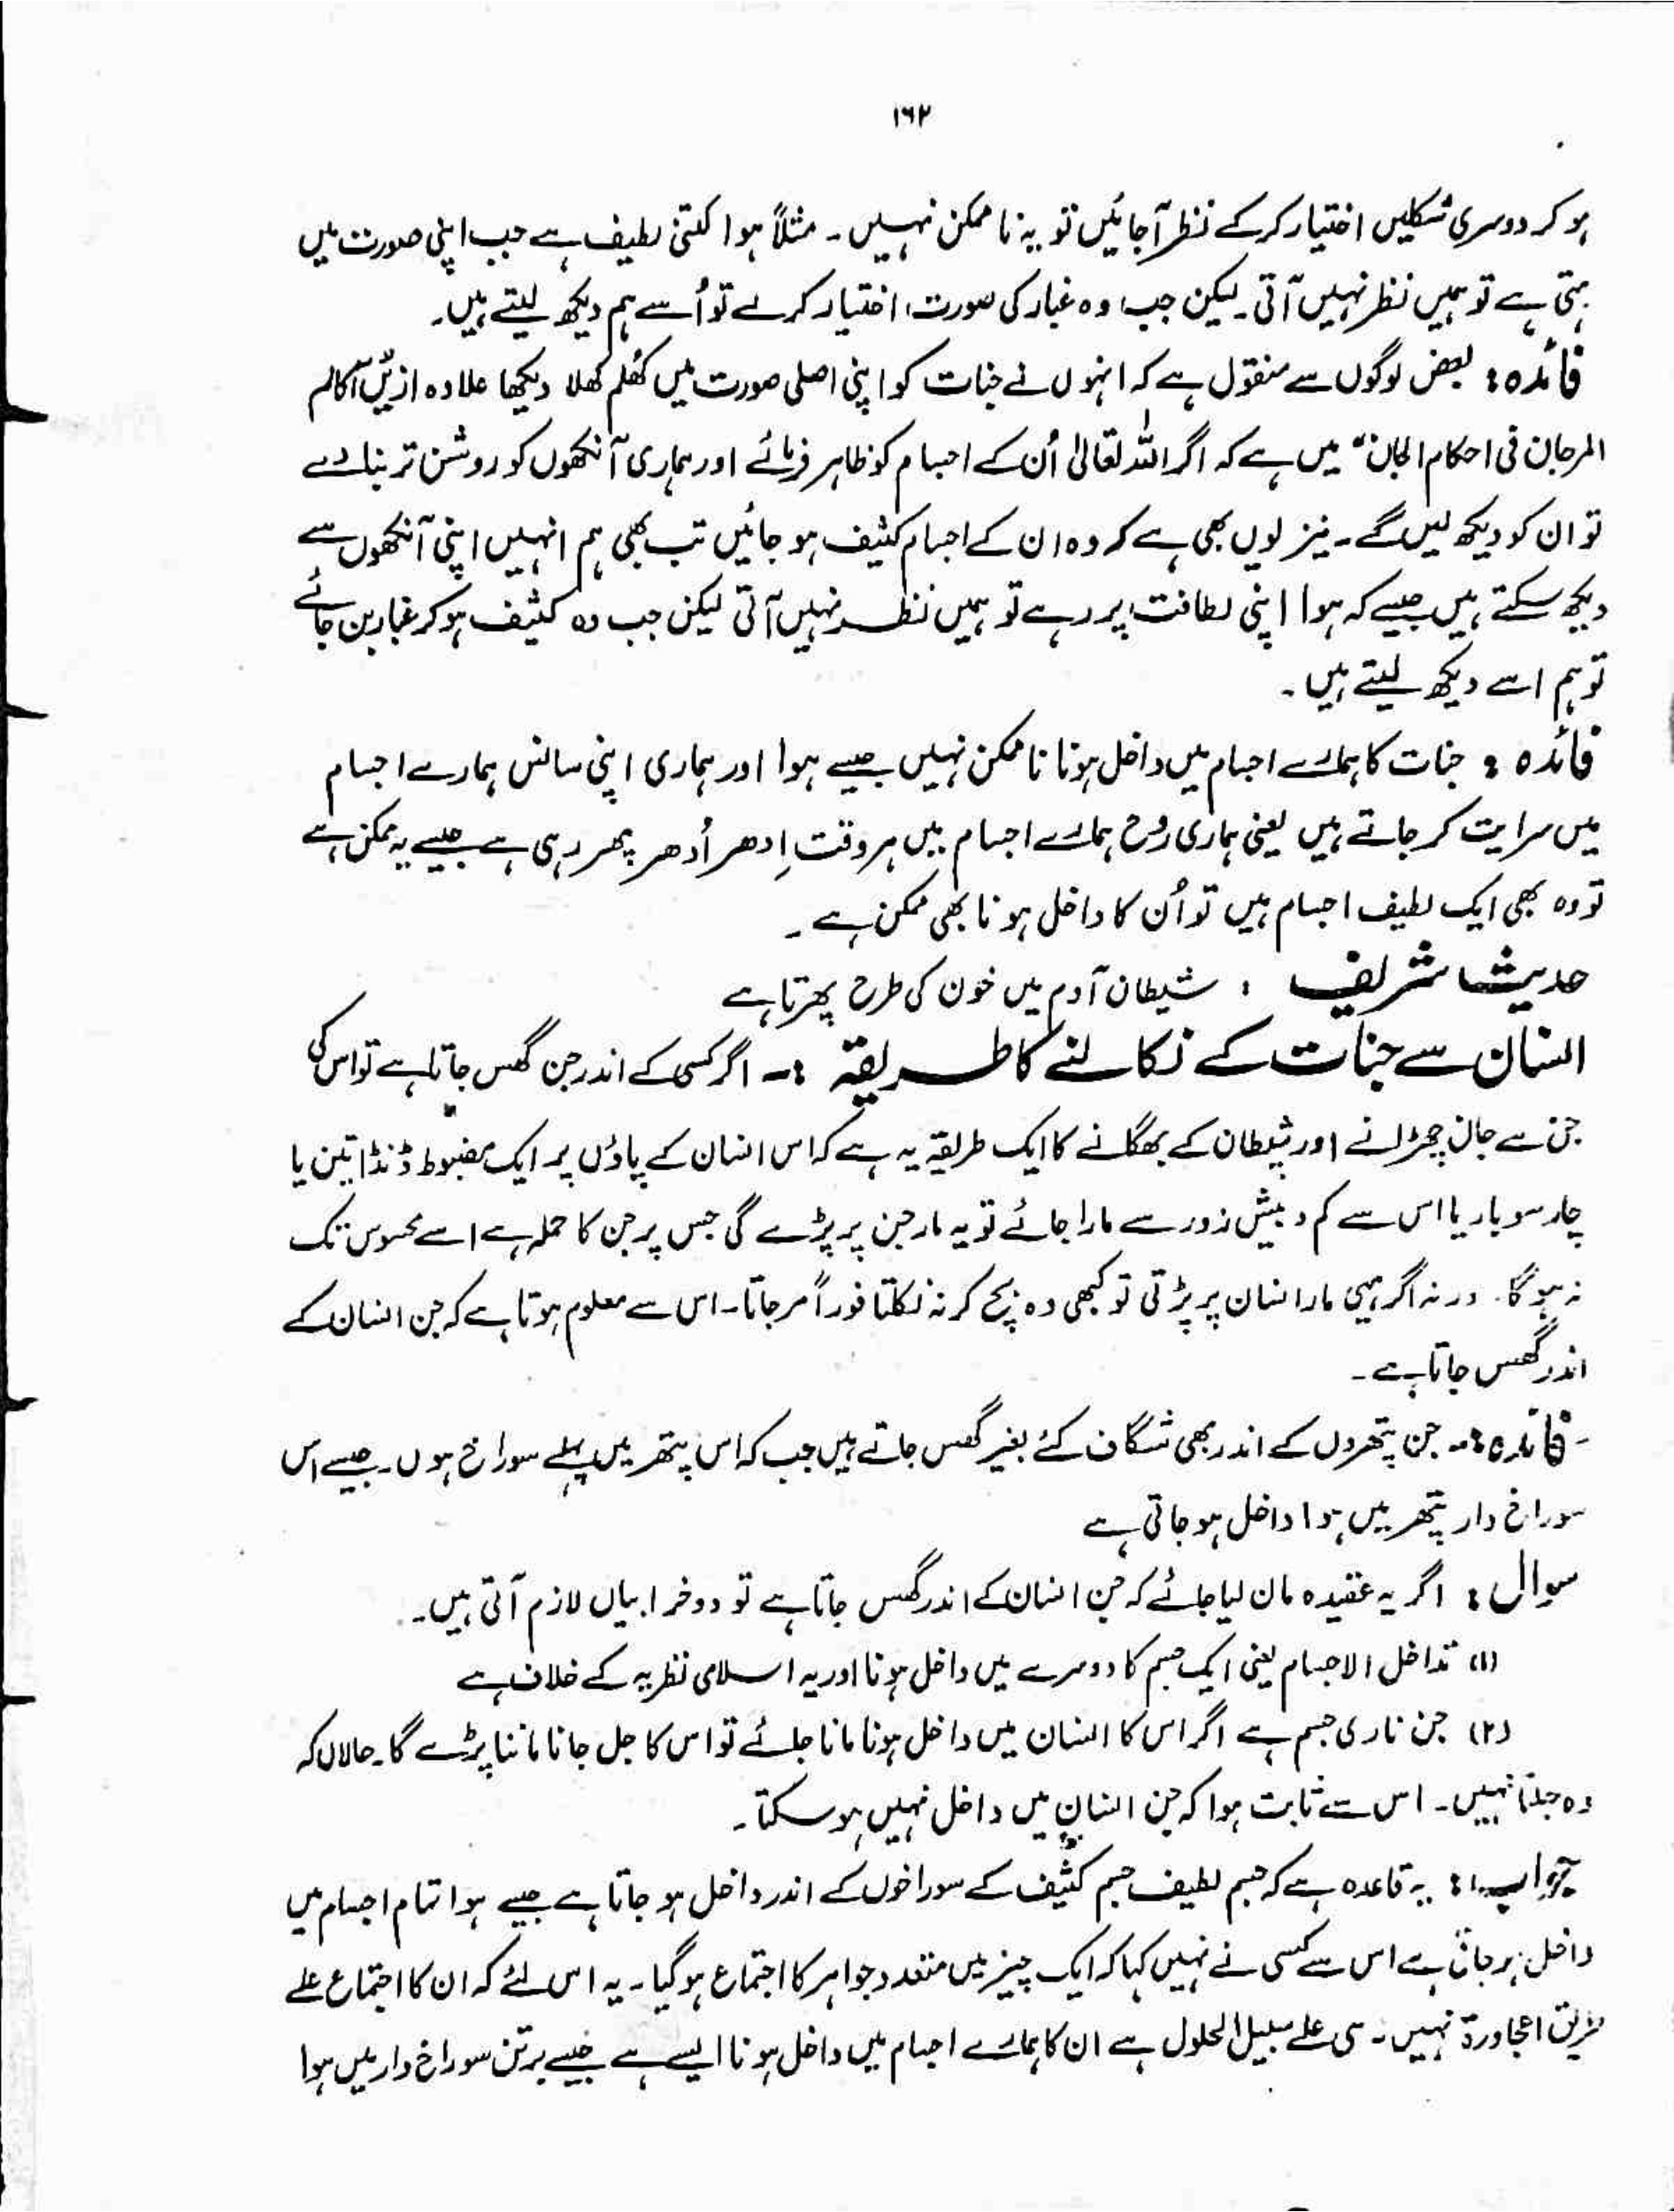 ۱۶۲
ہو کر دوسری شکلیں اختیار کر کے نظر آ جائیں تو یہ نا ممکن نہیں۔ مثلاً ہوا کتنی لطیف ہے جب اپنی صورت میں
ہتی ہے تو ہمیں نظر نہیں آتی۔ لیکن جب وہ غبار کی صورت اختیار کرلے تو اُسے ہم دیکھ لیتے ہیں۔
فائدہ : بعض لوگوں سے منقول ہے کہ انہوں نے جنات کو اپنی اصلی صورت میں کھُلم کھلا دیکھا علاوہ ازیں آکام
المرجان فی احکام الجان" میں ہے کہ اگر اللہ تعالیٰ اُن کے اجسام کو ظاہر فرمائے اور ہماری آنکھوں کو روشن تر بنا دے
تو ان کو دیکھ لیں گے۔ نیز یوں بھی ہے کہ وہ ان کے اجسام کثیف ہو جائیں تب بھی ہم انہیں اپنی آنکھوں سے
دیکھ سکتے ہیں جیسے کہ ہوا اپنی لطافت پر رہے تو ہمیں نظر نہیں آتی لیکن جب وہ کثیف ہو کر غبار بن جائے
تو ہم اسے دیکھ لیتے ہیں۔
فائدہ : جنات کا ہمارے اجسام میں داخل ہونا نا ممکن نہیں جیسے ہوا اور ہماری اپنی سانس ہمارے اجسام
میں سرایت کر جاتے ہیں یعنی ہماری روح ہمارے اجسام میں ہر وقت اِدھر اُدھر پھر رہی ہے جیسے یہ ممکن ہے
تو وہ بھی ایک لطیف اجسام ہیں تو اُن کا داخل ہونا بھی ممکن ہے ۔
حدیث شریف : شیطان آدم میں خون کی طرح پھرتا ہے
انسان سے جنات کے نکالنے کا طریقہ :۔ اگر کسی کے اندر جن گھس جاتا ہے تو اس کی
جن سے جان چھڑانے اور شیطان کے بھگانے کا ایک طریقہ یہ ہے کہ اس انسان کے پاؤں پر ایک مضبوط ڈنڈا تین یا
چار سو بار یا اس سے کم و بیش زور سے مارا جائے تو یہ مار جن پر پڑے گی جس پر جن کا حملہ ہے اسے محسوس تک
نہ ہوگا۔ ورنہ اگر یہی مار انسان پر پڑتی تو کبھی وہ بچ کر نہ نکلتا فوراً مر جاتا۔ اس سے معلوم ہوتا ہے کہ جن انسان کے
اندر گھس جاتا ہے۔
۔ فائدہ :۔ جن پتھروں کے اندر بھی شگاف کئے بغیر گھس جاتے ہیں جب کہ اس پتھر میں پہلے سوراخ ہوں۔ جیسے اس
سوراخ دار پتھر میں ہوا داخل ہو جاتی ہے
سوال : اگر یہ عقیدہ مان لیا جائے کہ جن انسان کے اندر گھس جاتا ہے تو دو خرابیاں لازم آتی ہیں۔
(۱) تداخل الاجسام یعنی ایک جسم کا دوسرے میں داخل ہونا اور یہ اسلامی نظریہ کے خلاف ہے
(۲) جن ناری جسم ہے اگر اس کا انسان میں داخل ہونا مانا جائے تو اس کا جل جانا ماننا پڑے گا۔ حالاں کہ
وہ جلتا نہیں۔ اس سے ثابت ہوا کہ جن انسان میں داخل نہیں ہو سکتا۔
جواب ۱ : یہ قاعدہ ہے کہ جسم لطیف جسم کثیف کے سوراخوں کے اندر داخل ہو جاتا ہے جیسے ہوا تمام اجسام میں
داخل ہو جاتی ہے اس سے کسی نے نہیں کہا کہ ایک چیز میں متعدد جواہر کا اجتماع ہو گیا۔ یہ اس لئے کہ ان کا اجتماع علے
طریق المجاورۃ نہیں۔ علے سبیل الحلول ہے ان کا ہمارے اجسام میں داخل ہونا ایسے ہے جیسے برتن سوراخ دار میں ہوا